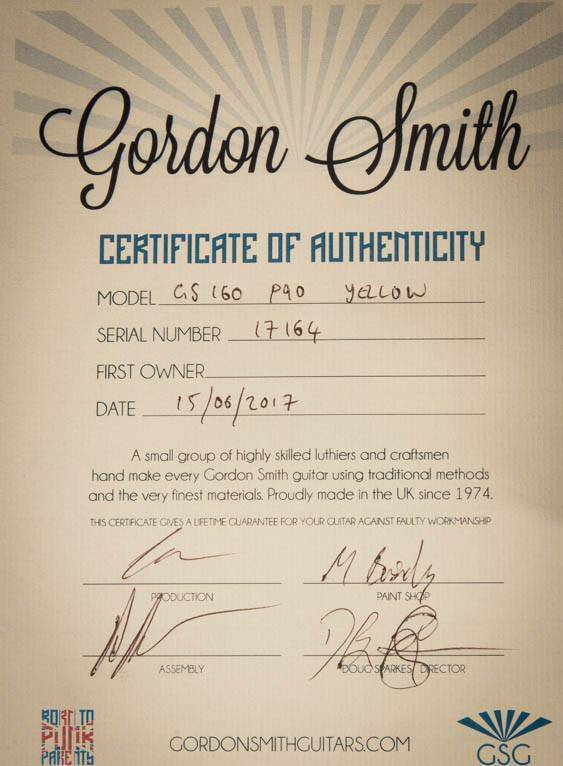 Gordon Smith
CERTIFICATE OF AUTHENTICITY
MODEL GS 160 P90 YELLOW
SERIAL NUMBER 17164
FIRST OWNER
DATE 15/06/2017
A small group of highly skilled luthiers and craftsmen
hand make every Gordon Smith guitar using traditional methods
and the very finest materials. Proudly made in the UK since 1974.
THIS CERTIFICATE GIVES A LIFETIME GUARANTEE FOR YOUR GUITAR AGAINST FAULTY WORKMANSHIP
PRODUCTION
PAINT SHOP
ASSEMBLY
DOUG SPARKES, DIRECTOR
BORN TO
PUNK
PARENTS
GORDONSMITHGUITARS.COM
GSG